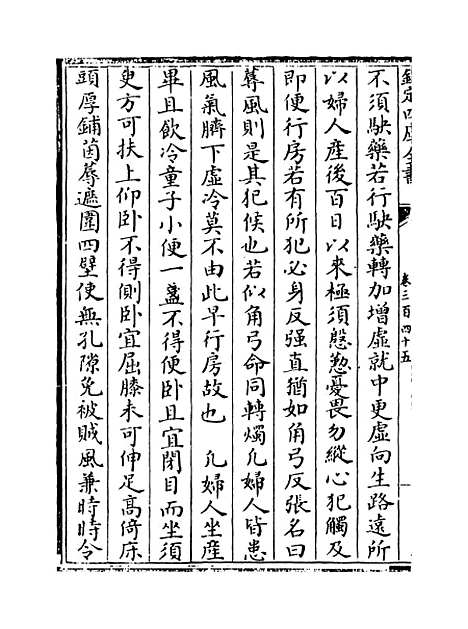 欽定四庫全書
卷三百四十五
不須駃藥若行駃藥轉加增虛就中更虛向生路遠所
以婦人產後百日以來極須慇懃憂畏勿縱心犯觸及
即便行房若有所犯必身反强直猶如角弓反張名曰
蓐風則是其犯候也若似角弓命同轉燭凡婦人皆患
風氣臍下虛冷莫不由此早行房故也　凡婦人坐產
畢且飲冷童子小便一盞不得便卧且宜閉目而坐須
臾方可扶上仰卧不得側卧宜屈膝未可伸足高倚床
頭厚鋪茵蓐遮圍四壁使無孔隙免被賊風兼時時令